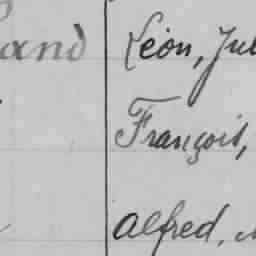 and Léon, Jul
François,
Alfred,